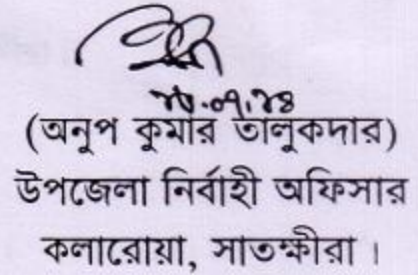 (অনুপ কুমার তালুকদার)
উপজেলা নির্বাহী অফিসার
কলারোয়া, সাতক্ষীরা।